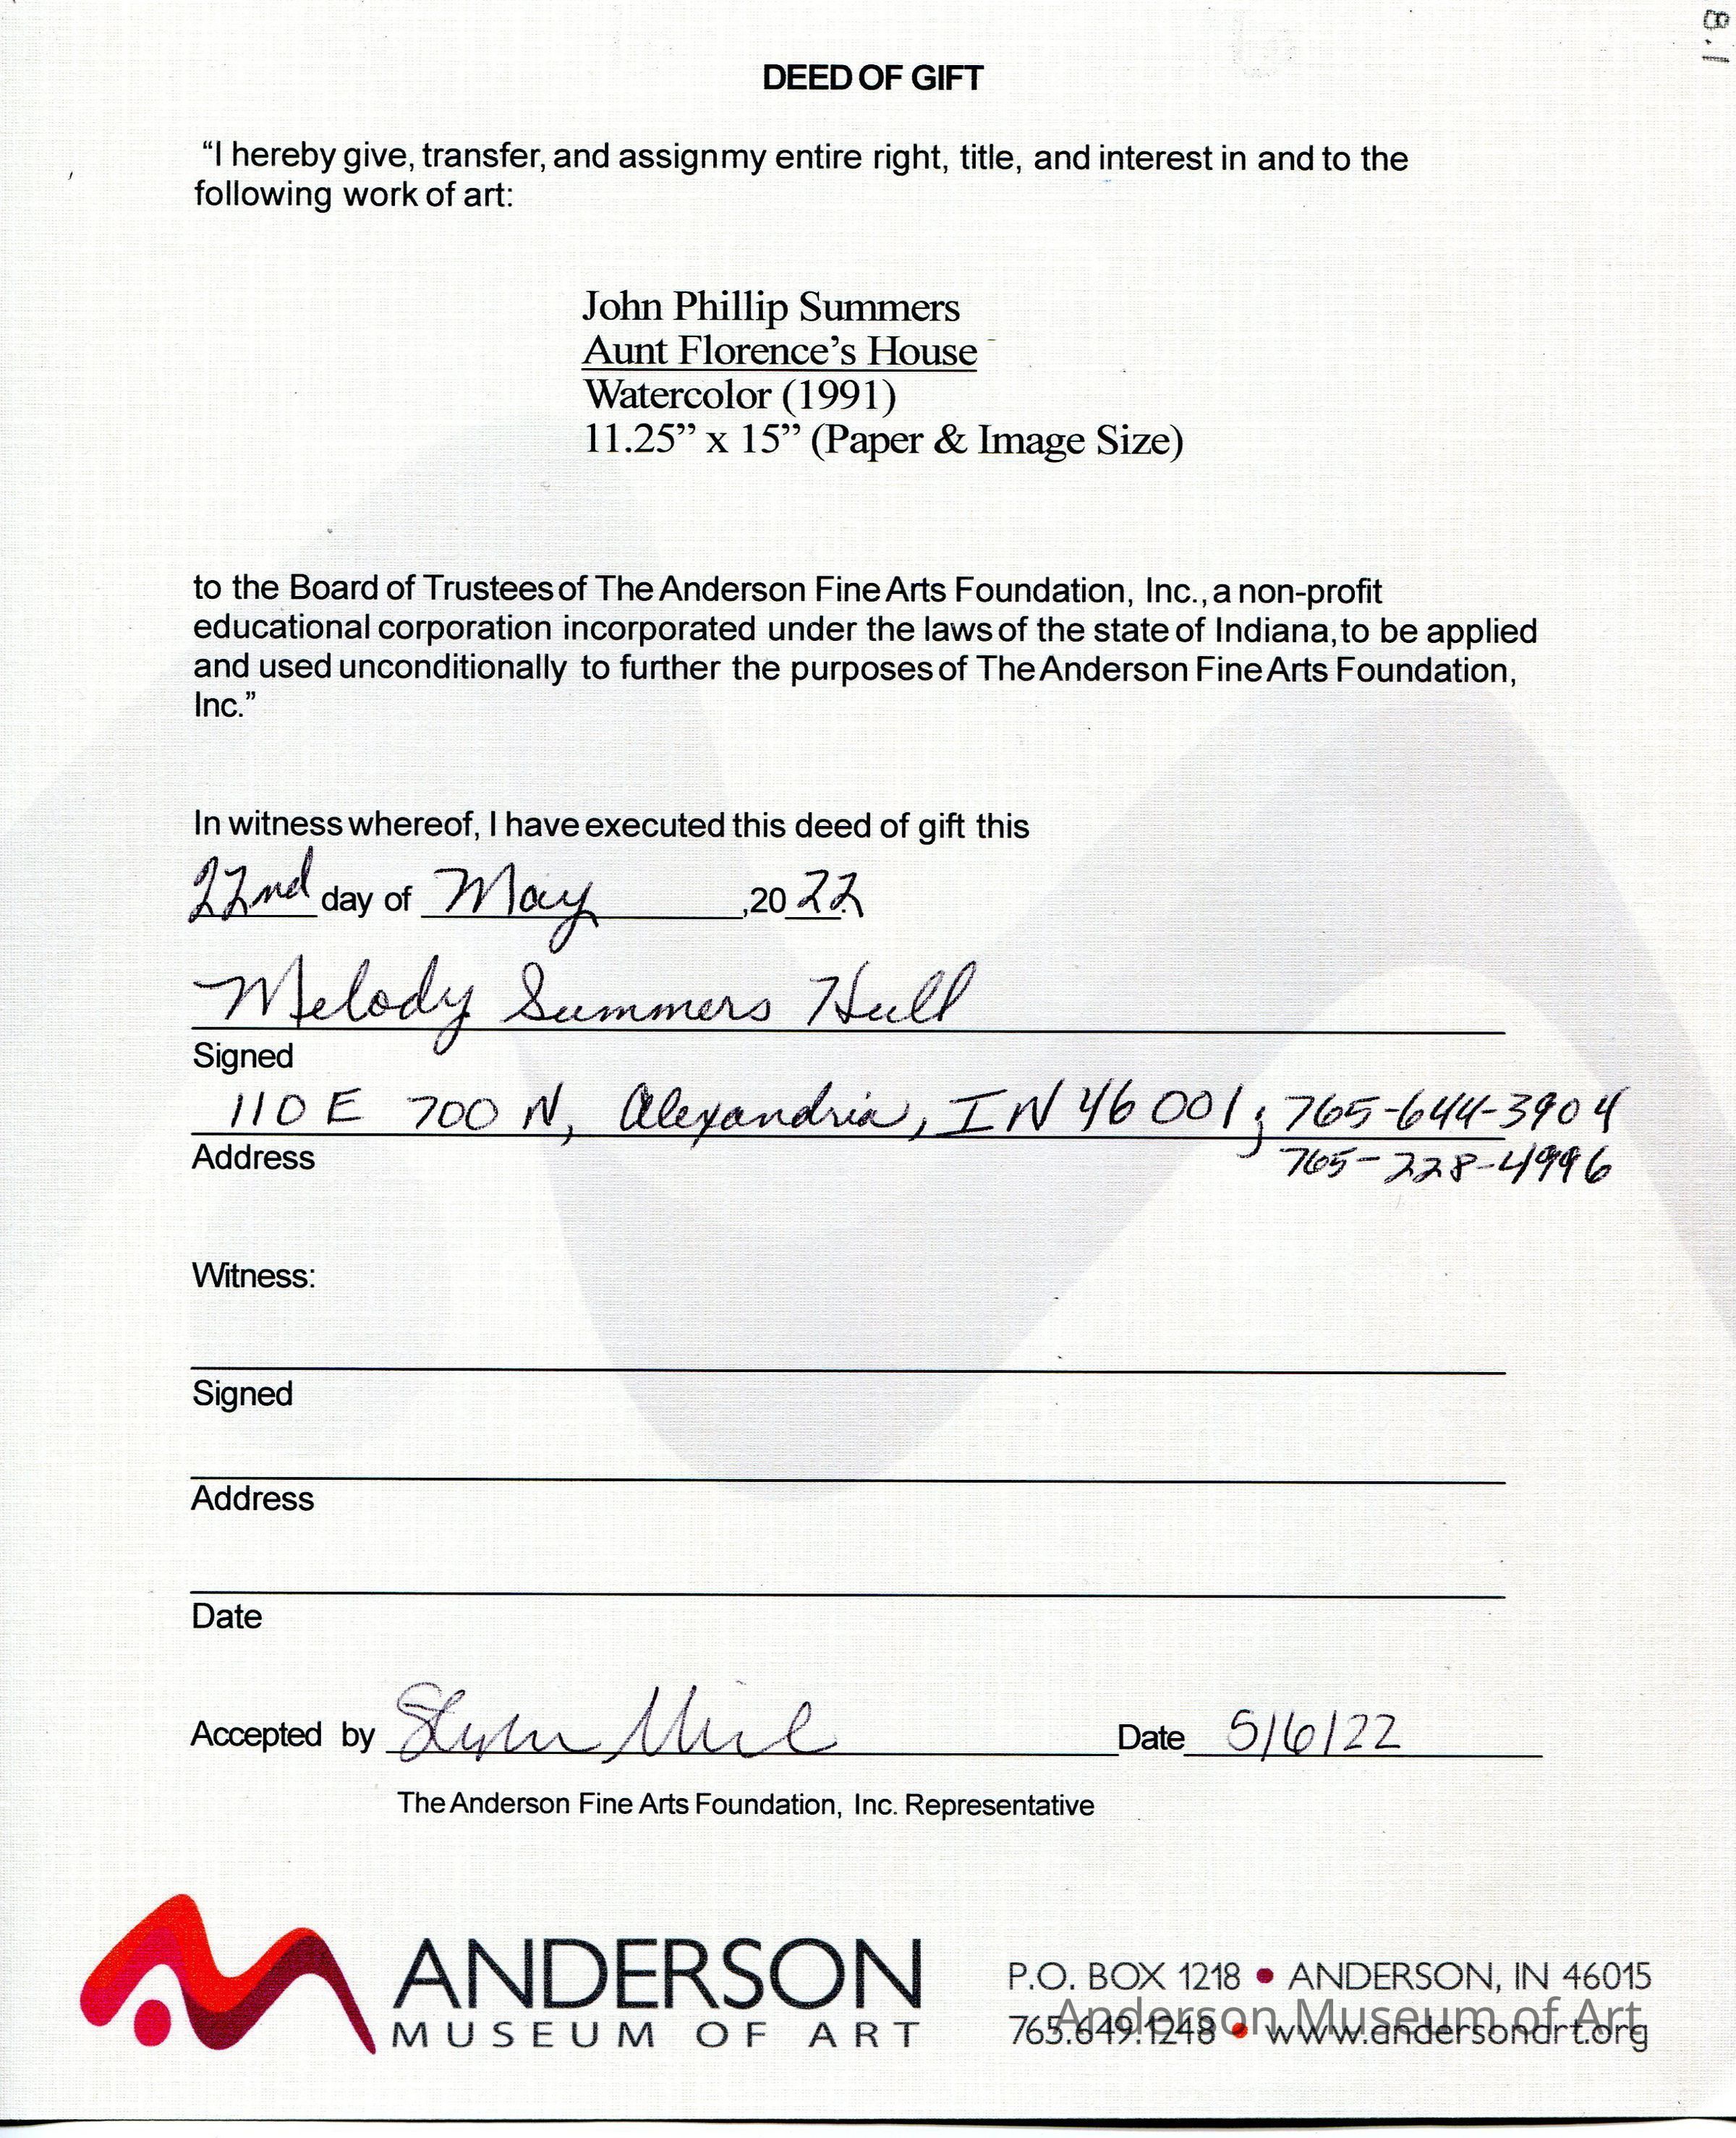 8.1
DEED OF GIFT
“I hereby give, transfer, and assign my entire right, title, and interest in and to the
following work of art:
John Phillip Summers
Aunt Florence’s House
Watercolor (1991)
11.25” x 15” (Paper & Image Size)
to the Board of Trustees of The Anderson Fine Arts Foundation, Inc., a non-profit
educational corporation incorporated under the laws of the state of Indiana, to be applied
and used unconditionally to further the purposes of The Anderson Fine Arts Foundation,
Inc.”
In witness whereof, I have executed this deed of gift this
22nd day of May ,20 22
Melody Summers Hull
Signed
110 E 700 N, Alexandria, IN 46001; 765-644-3904
Address
765-228-4996
Witness:
Signed
Address
Date
Accepted by Date 5/6/22
The Anderson Fine Arts Foundation, Inc. Representative
ANDERSON
MUSEUM OF ART
P.O. BOX 1218 • ANDERSON, IN 46015
765.649.1248 • www.andersonart.org
Anderson Museum of Art